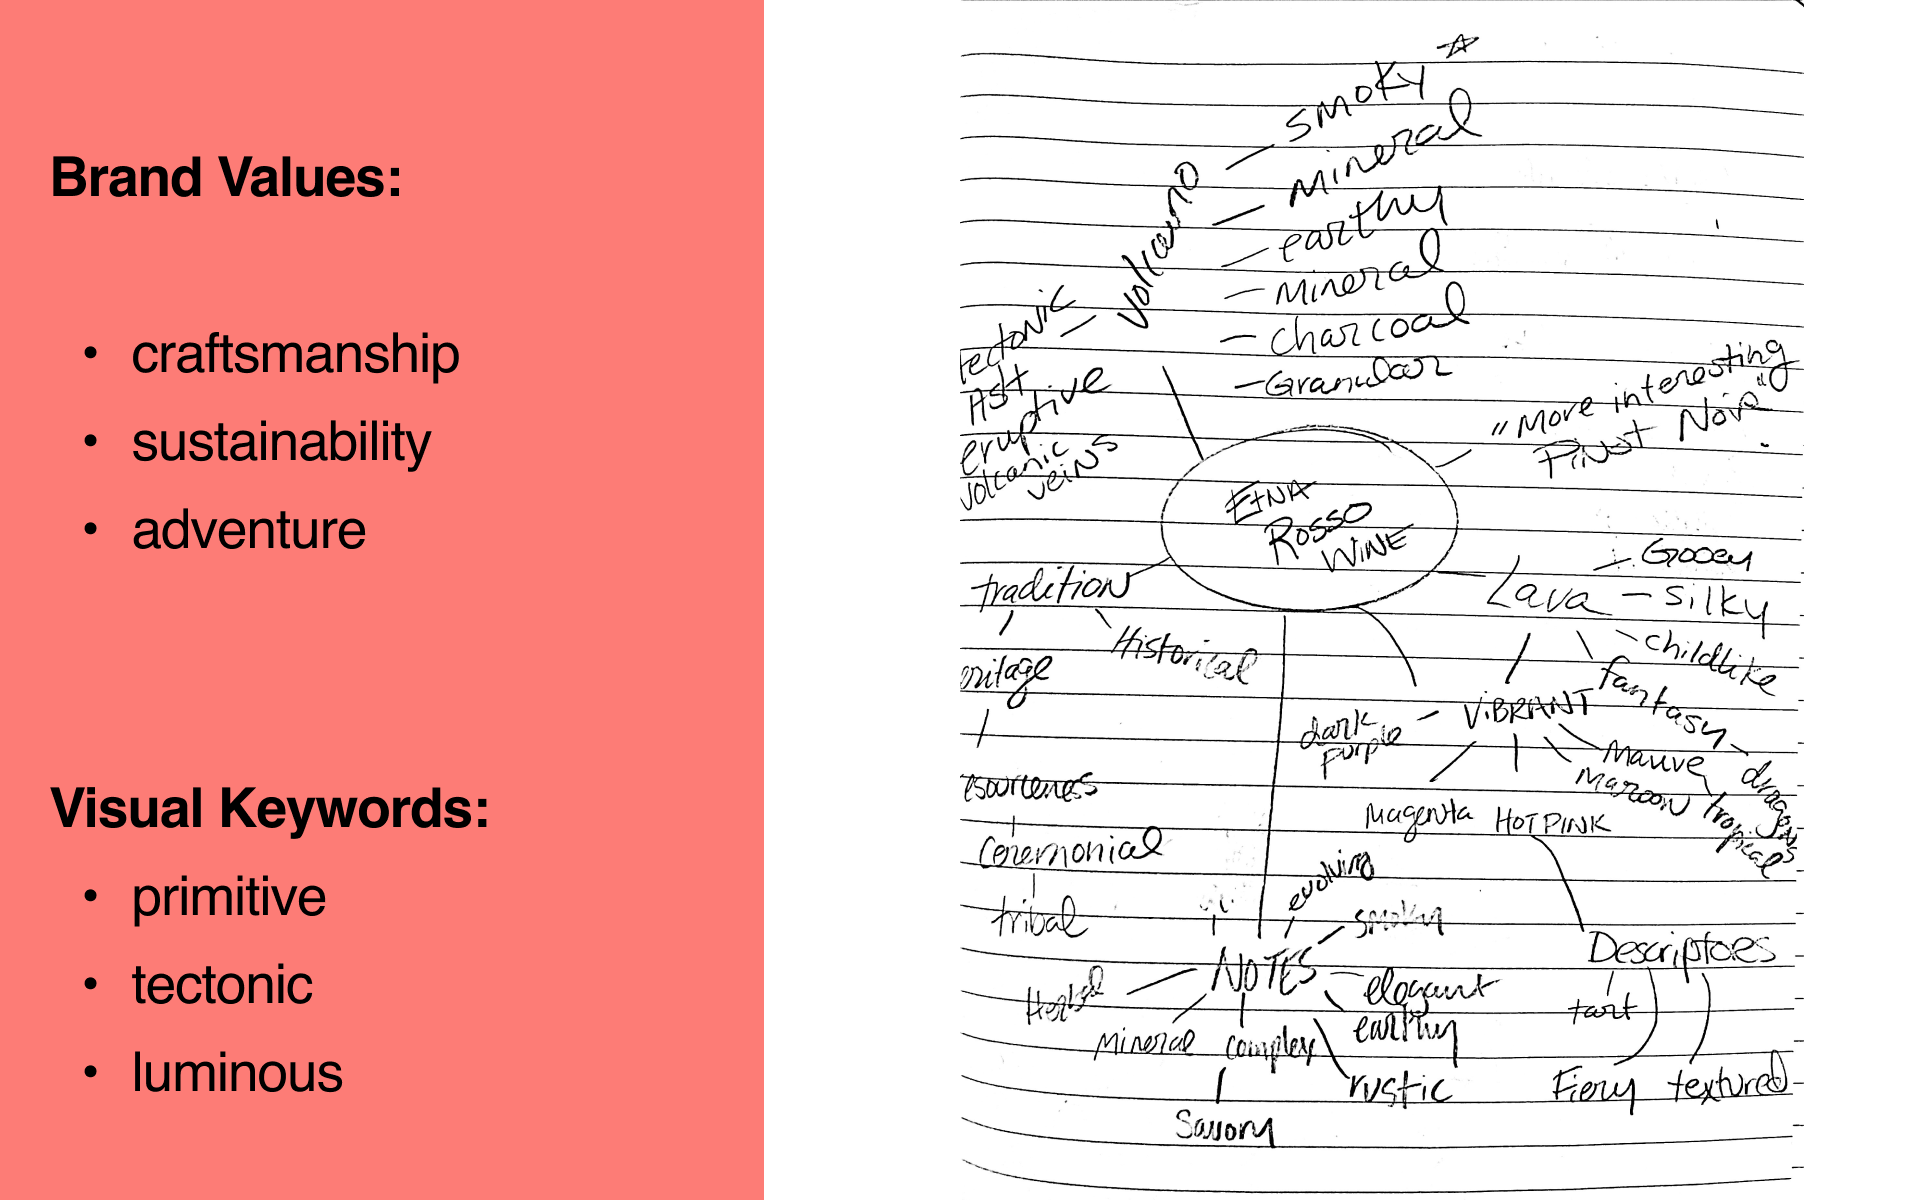 Brand Values:
• craftsmanship
• sustainability
• adventure
Visual Keywords:
• primitive
• tectonic
• luminous
smoky
mineral
earthy
mineral
charcoal
Granular
volcano
tectonic
ASH
eruptive
volcanic
veins
"More interesting
Pinot Noir"
ETNA
ROSSO
WINE
tradition
Historical
eritage
Ceremonial
tribal
Lava
Gooey
silky
childlike
fantasy
dragons
tropical
ViBRANT
dark
purple
Magenta
HOT PINK
Mauve
Maroon
NOTES
evolving
smoky
elegant
earthy
rustic
complex
Savory
Mineral
Herbal
Descriptors
tart
Fiery
textured